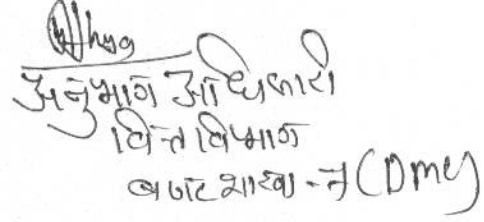 अनुभाग अधिकारी
वित्त विभाग
बजट शाखा - न (DMC)